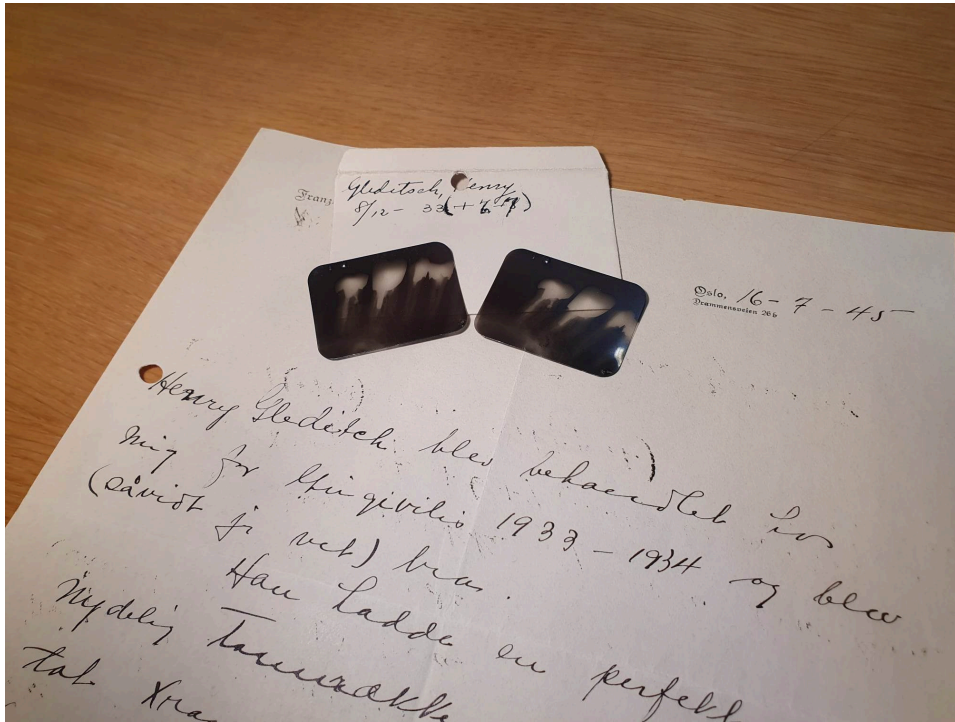 Gleditsch, Henry
8/12 - 33 (+
Franz
Oslo, 16 - 7 - 45
Drammensveien 20b
Henry Gleditsch blev behandlet hos
mig for Gingivitis 1933 - 1934 og blev
(såvidt jeg vet) bra.
Han hadde en perfekt
nydelig Tannrække
tok Xra